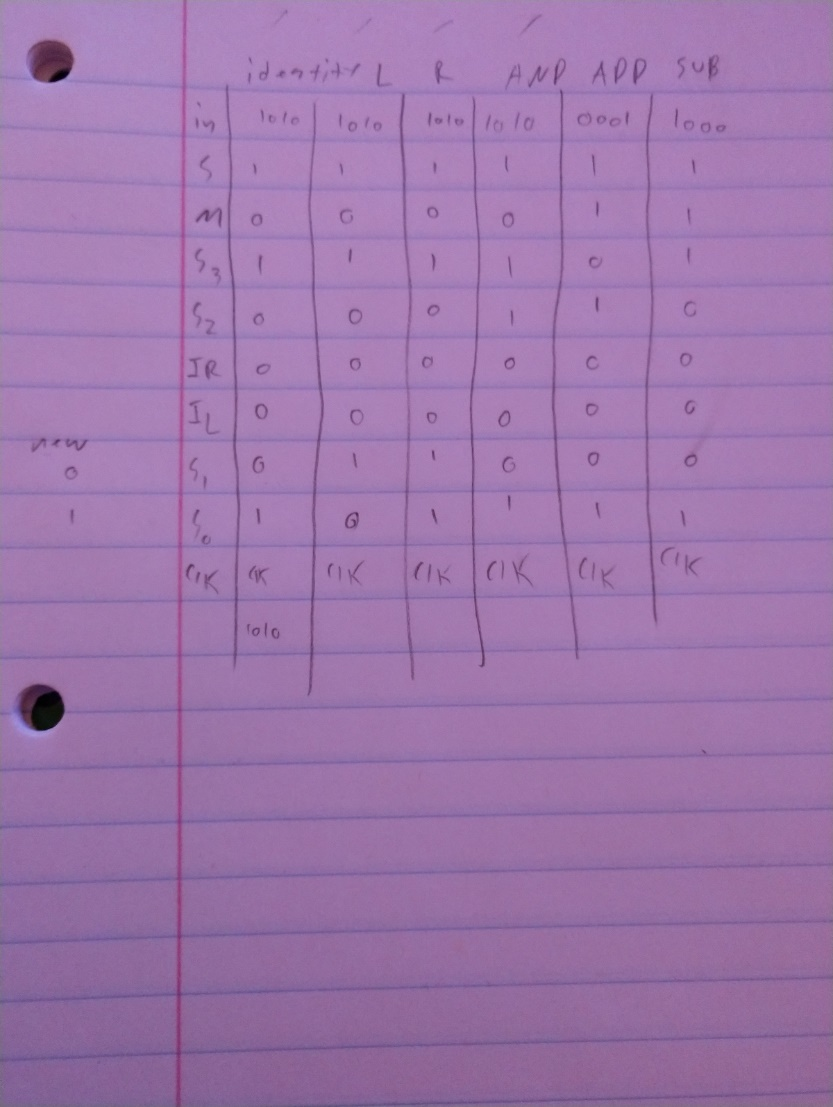 identity L R AND ADD SUB
in 1010 1010 1010 1010 0001 1000
S 1 1 1 1 1 1
M 0 0 0 0 1 1
S3 1 1 1 1 0 1
S2 0 0 0 1 1 0
IR 0 0 0 0 0 0
IL 0 0 0 0 0 0
new
0 S1 0 1 1 0 0 0
1 S0 1 0 1 1 1 1
CLK CLK CLK CLK CLK CLK CLK
1010